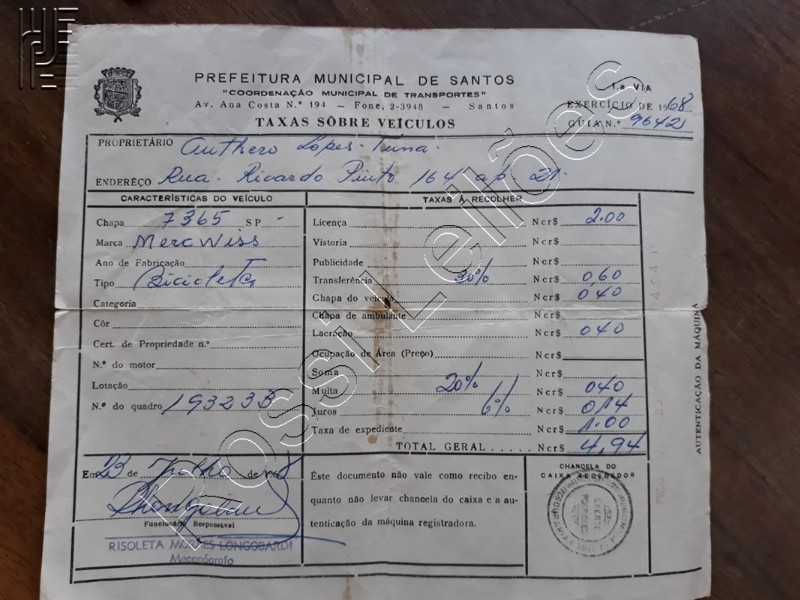 PREFEITURA MUNICIPAL DE SANTOS
"COORDENAÇÃO MUNICIPAL DE TRANSPORTES"
Av. Ana Costa N.º 194 — Fone, 2-3948 — Santos
TAXAS SÔBRE VEÍCULOS
1.a VIA
EXERCÍCIO DE 1968
GUIA N.º 9642
PROPRIETÁRIO Authero Lopes
ENDERÊÇO Rua Ricardo Pinto 164 ap. 21
CARACTERÍSTICAS DO VEÍCULO
Chapa 7365 SP
Marca Merc Wiss
Ano de Fabricação
Tipo Bicicleta
Categoria
Côr
Cert. de Propriedade n.º
N.º do motor
Lotação
N.º do quadro 193233
TAXAS À RECOLHER
Licença Ncr$ 2.00
Vistoria Ncr$
Publicidade Ncr$
Transferência 30% Ncr$ 0,60
Chapa do veículo Ncr$ 0,40
Chapa de ambulante Ncr$
Lacração Ncr$ 0,40
Ocupação de Área (Preço) Ncr$
Soma Ncr$
Multa 20% Ncr$ 0,40
Juros 6% Ncr$ 0,14
Taxa de expediente Ncr$ 1.00
TOTAL GERAL Ncr$ 4,94
AUTENTICAÇÃO DA MÁQUINA
Em 23 de Julho de 1968
Funcionário Responsável
RISOLETA MORAES LONGOBARDI
Mecanógrafo
Êste documento não vale como recibo en-
quanto não levar chancela do caixa e a au-
tenticação da máquina registradora.
CHANCELA DO
CAIXA RECEBEDOR
Rossi Leilões